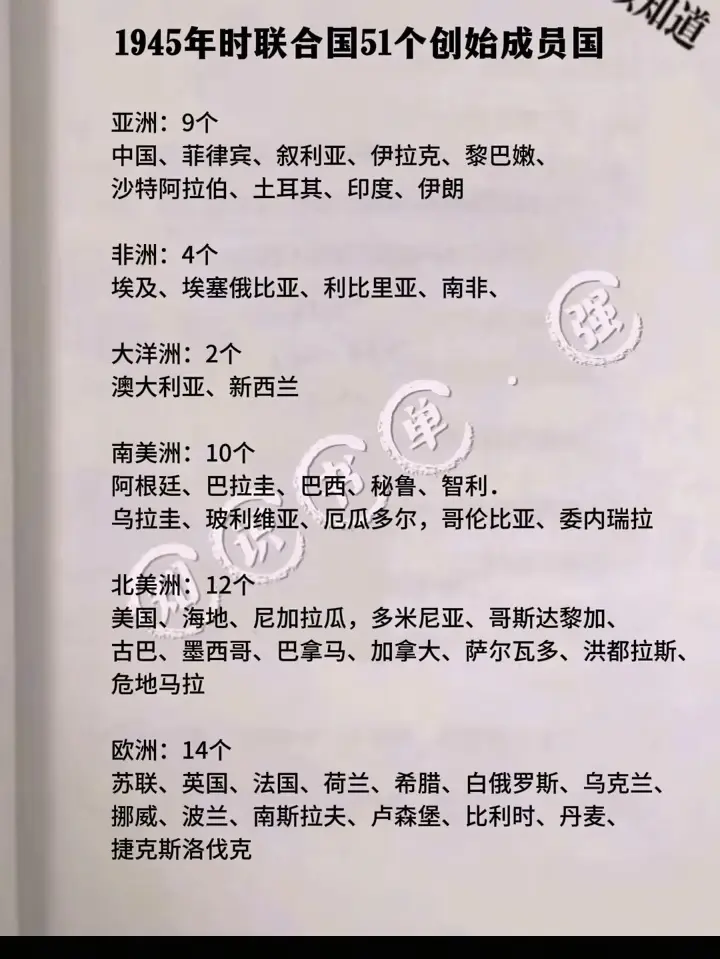 知道
1945年时联合国51个创始成员国
亚洲：9个
中国、菲律宾、叙利亚、伊拉克、黎巴嫩、
沙特阿拉伯、土耳其、印度、伊朗
非洲：4个
埃及、埃塞俄比亚、利比里亚、南非、
大洋洲：2个
澳大利亚、新西兰
南美洲：10个
阿根廷、巴拉圭、巴西、秘鲁、智利．
乌拉圭、玻利维亚、厄瓜多尔，哥伦比亚、委内瑞拉
北美洲：12个
美国、海地、尼加拉瓜，多米尼亚、哥斯达黎加、
古巴、墨西哥、巴拿马、加拿大、萨尔瓦多、洪都拉斯、
危地马拉
欧洲：14个
苏联、英国、法国、荷兰、希腊、白俄罗斯、乌克兰、
挪威、波兰、南斯拉夫、卢森堡、比利时、丹麦、
捷克斯洛伐克
知识书单·强